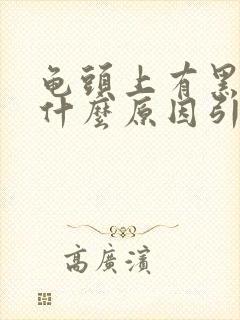 龟頭上有黑
什麼原因引
高廣濱